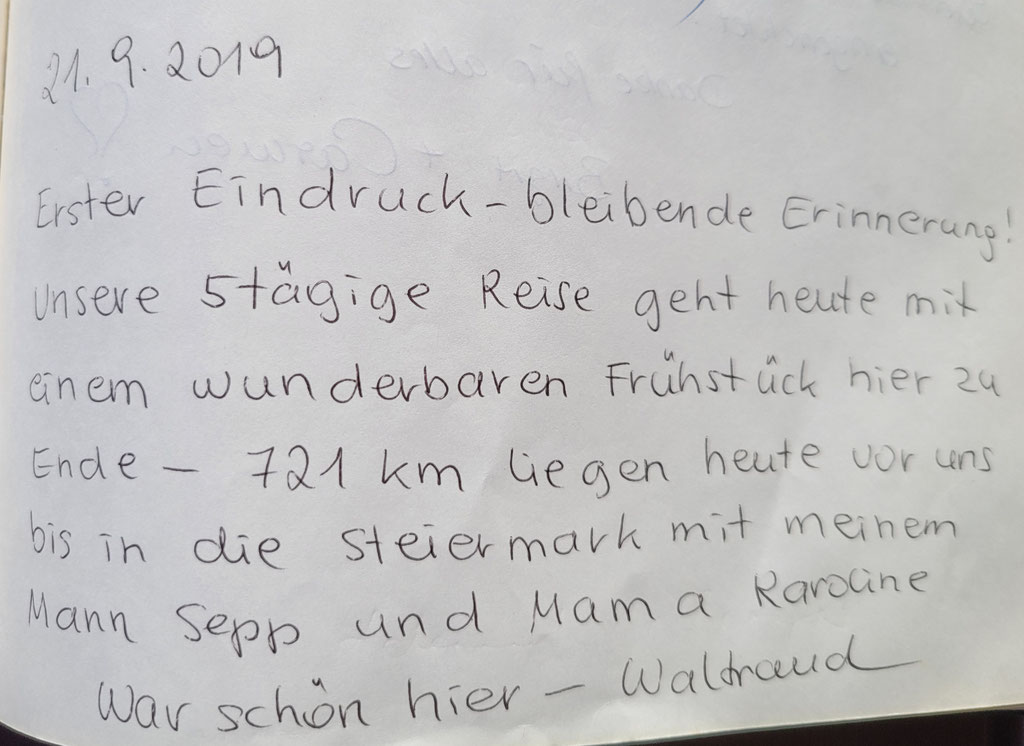 21. 9. 2019
Erster Eindruck - bleibende Erinnerung!
Unsere 5tägige Reise geht heute mit
einem wunderbaren Frühstück hier zu
Ende - 721 km liegen heute vor uns
bis in die Steiermark mit meinem
Mann Sepp und Mama Karoline
War schön hier - Waltraud